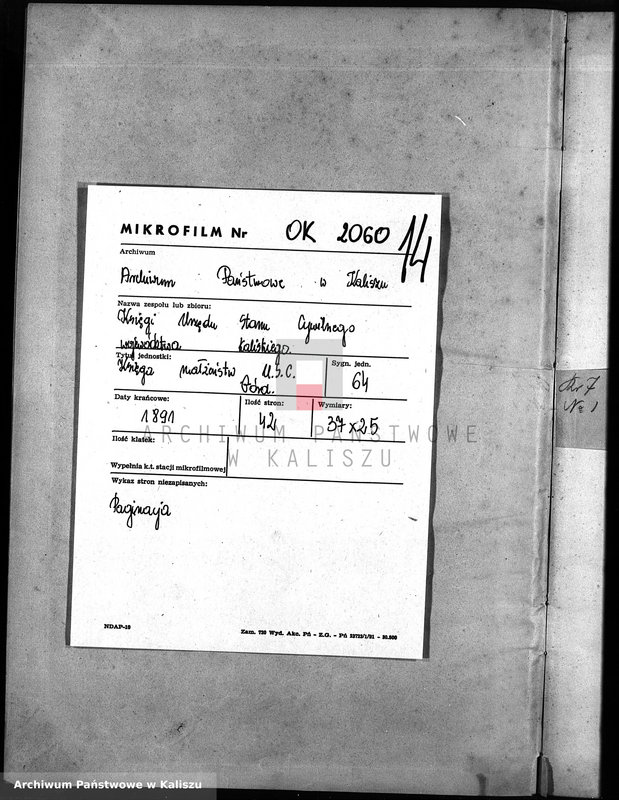 MIKROFILM Nr OK 2060 14
Archiwum
Archiwum Państwowe w Kaliszu
Nazwa zespołu lub zbioru:
Księgi Urzędu Stanu Cywilnego
województwa kaliskiego.
Tytuł jednostki:
Księga małżeństw U.S.C.
Sygn. jedn.
64
Daty krańcowe:
1891
Ilość stron:
42
Wymiary:
37x25
Ilość klatek:
Wypełnia k.t. stacji mikrofilmowej
Wykaz stron niezapisanych:
Paginacja
NDAP-10
Zam. 720 Wyd. Akc. Pń - Z.G. - Pń
Nr 7
No 1
ARCHIWUM PAŃSTWOWE
W KALISZU
Archiwum Państwowe w Kaliszu